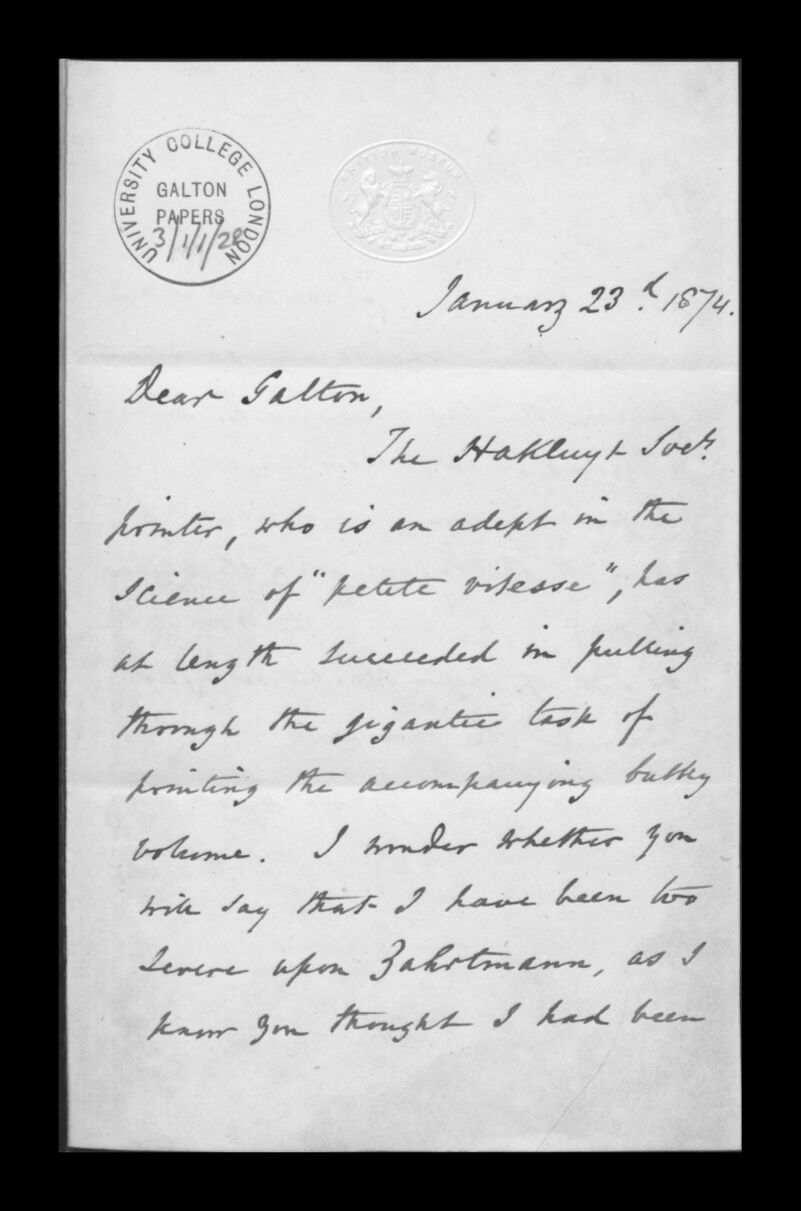 UNIVERSITY COLLEGE LONDON
GALTON
PAPERS
3/1/1/28
BRITISH MUSEUM
January 23d. 1874.
Dear Galton,
The Hakluyt Socty.
printer, who is an adept in the
science of "petite vitesse", has
at length succeeded in pulling
through the gigantic task of
printing the accompanying bulky
volume. I wonder whether you
will say that I have been too
severe upon Zahrtmann, as I
know you thought I had been